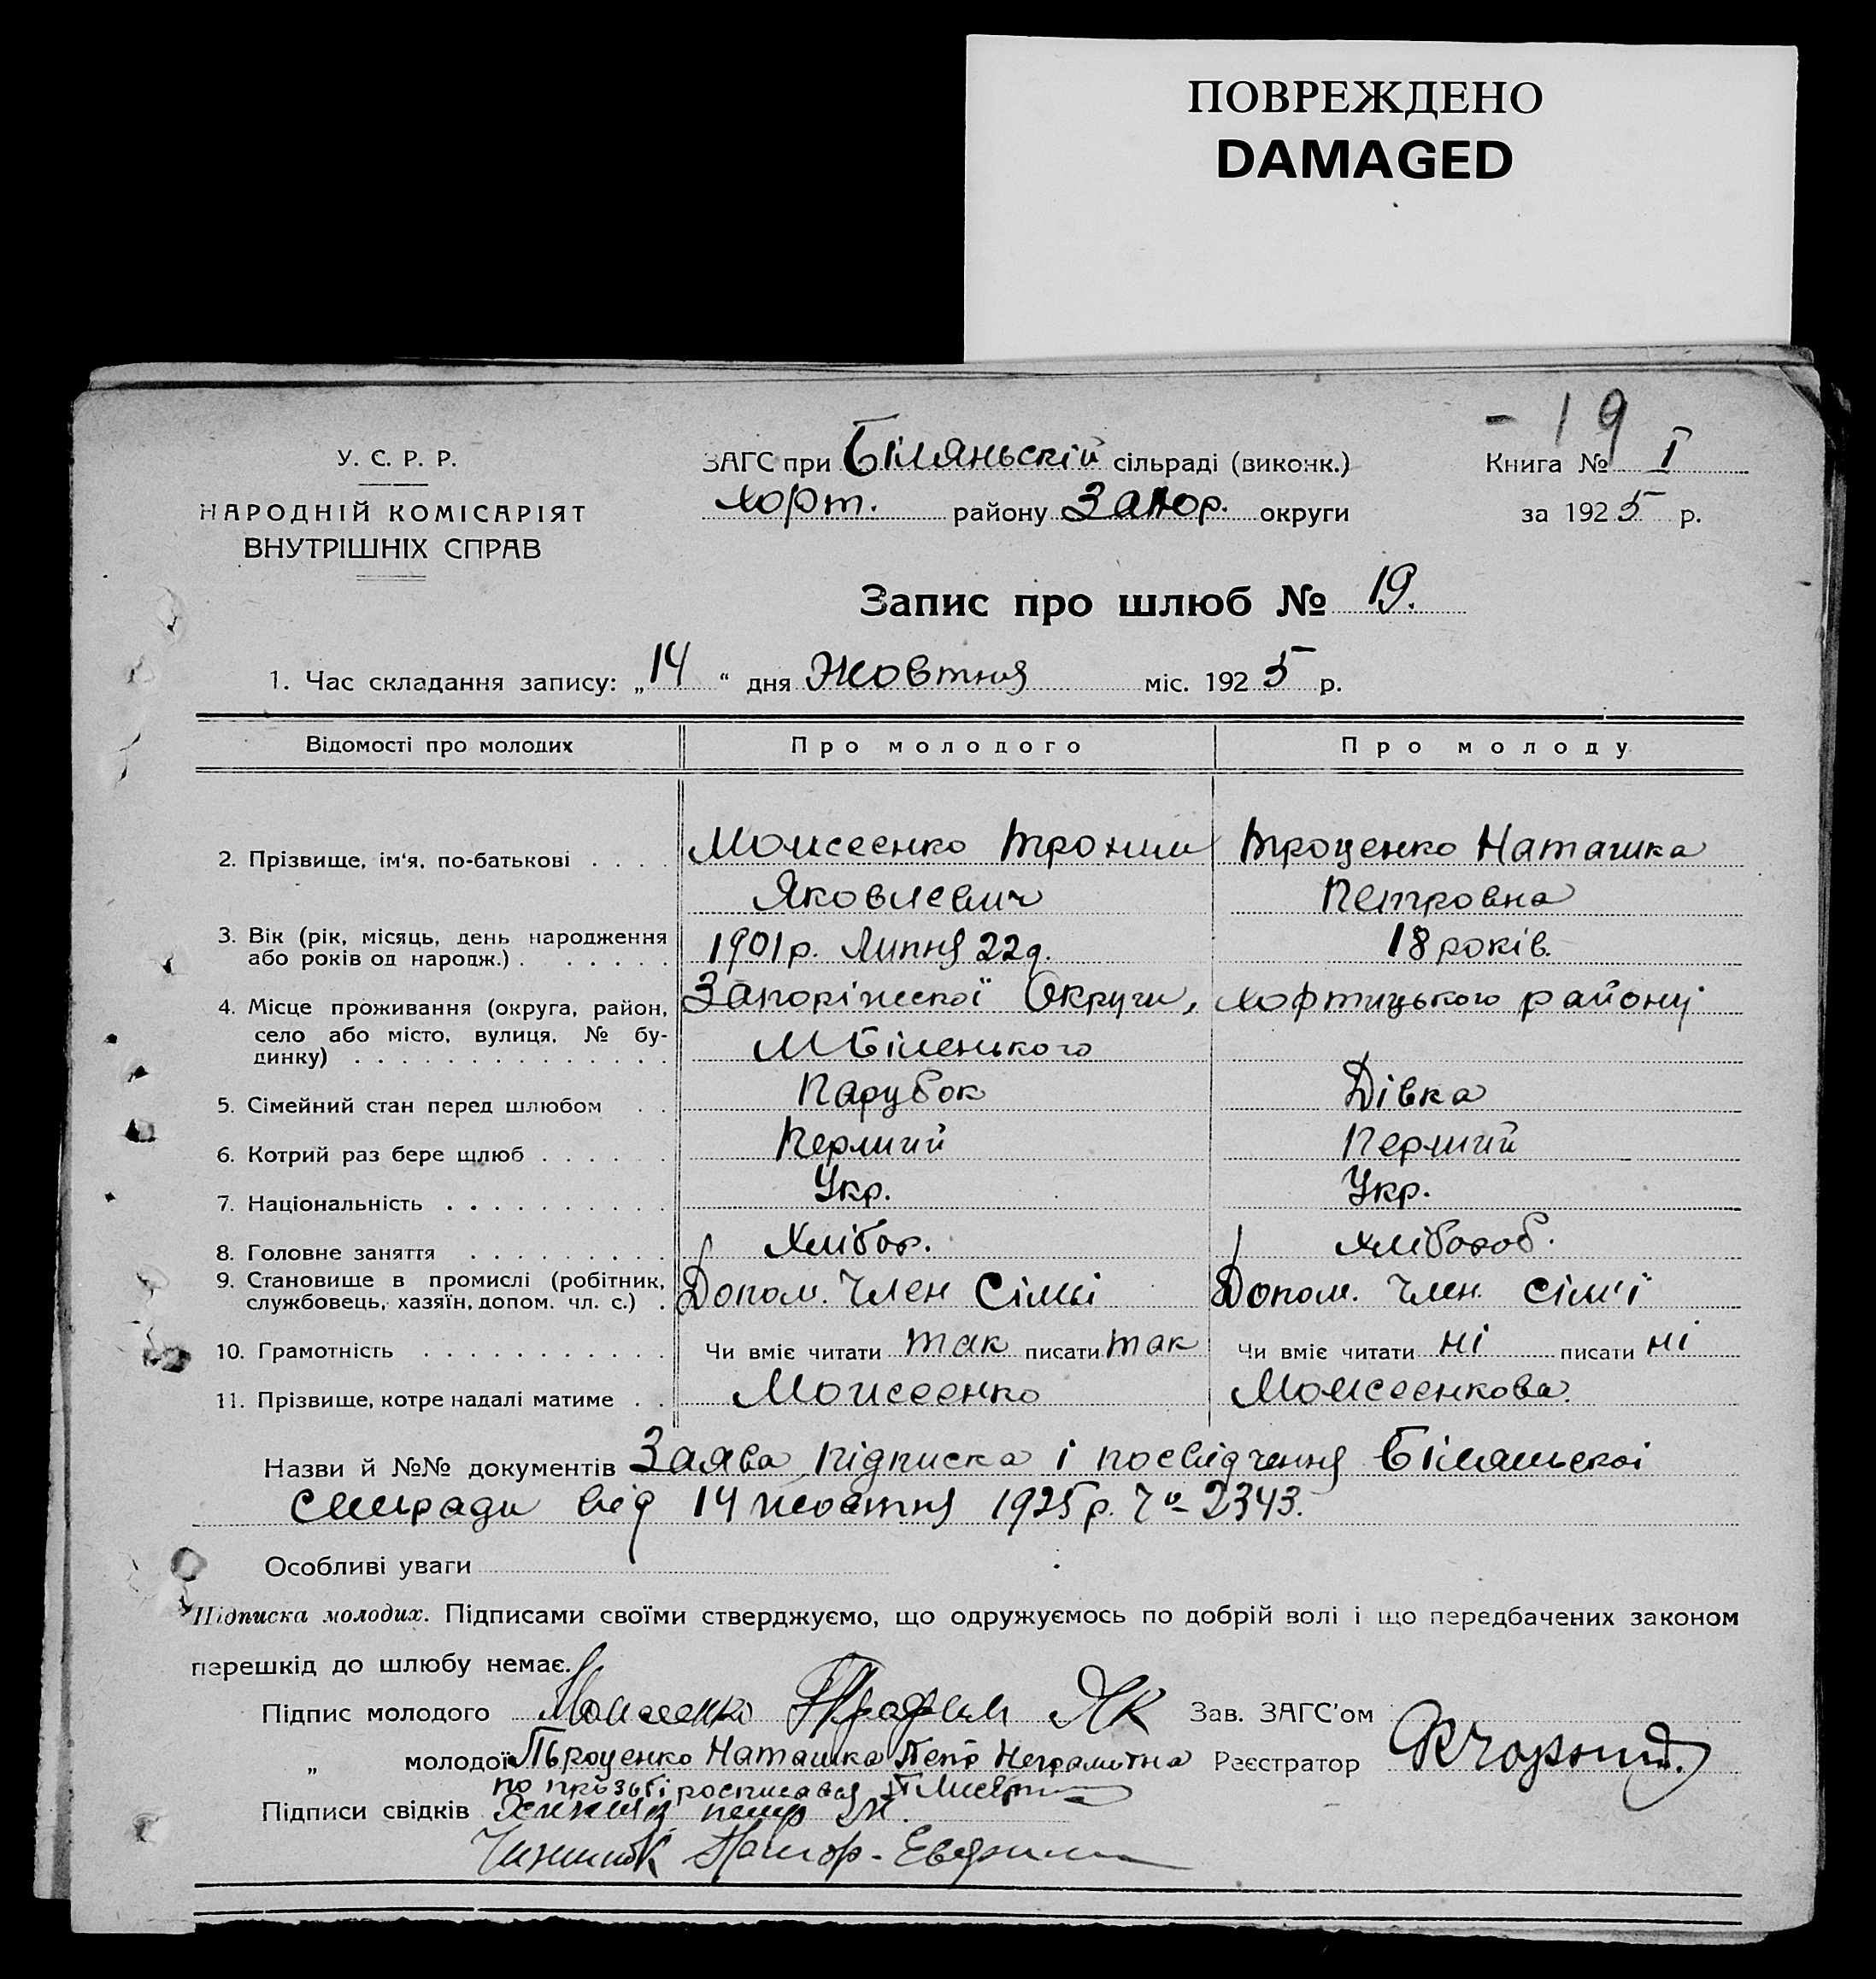 ПОВРЕЖДЕНО
DAMAGED
- 19
У. С. Р. Р.
НАРОДНІЙ КОМІСАРІЯТ
ВНУТРІШНІХ СПРАВ
ЗАГС при Біляньскій сільраді (виконк.)
Хорт. району Запор. округи
Книга № I
за 1925 р.
Запис про шлюб № 19.
1. Час складання запису: „14“ дня Жовтня міс. 1925 р.
Відомості про молодих Про молодого Про молоду
2. Прізвище, ім'я, по-батькові . . . . Моисеєнко Трохим Троценко Наташка
Яковлевич Петровна
3. Вік (рік, місяць, день народження 1901 р. Липня 22 д. 18 років.
або років од народж.) . . . . . .
4. Місце проживання (округа, район, Запоріжскої Округи, Хортицького району
село або місто, вулиця, № бу- М Біленького
динку) . . . . . . . . . . . . .
5. Сімейний стан перед шлюбом . . Парубок Дівка
6. Котрий раз бере шлюб . . . . . . Перший Перший
7. Національність . . . . . . . . . . Укр. Укр.
8. Головне заняття . . . . . . . . . Хлібор. хлібороб.
9. Становище в промислі (робітник, Допом. Член Сімьі Допом. Член. сім'ї
службовець, хазяїн, допом. чл. с.) .
10. Грамотність . . . . . . . . . . . Чи вміє читати так писати так Чи вміє читати ні писати ні
11. Прізвище, котре надалі матиме . . Моисеєнко Моисеєнкова.
Назви й №№ документів Заява підписка і посвідчення Біляньскоі
сільради від 14 жовтня 1925 р. Чо 2343.
Особливі уваги
Підписка молодих. Підписами своїми стверджуємо, що одружуємось по добрій волі і що передбачених законом
перешкід до шлюбу немає.
Підпис молодого Моисеенко Трафим ЯК Зав. ЗАГС'ом
„ молодої Троценко Наташка Петр Неграмотна Реєстратор
по прозьбі росписався
Підписи свідків петр